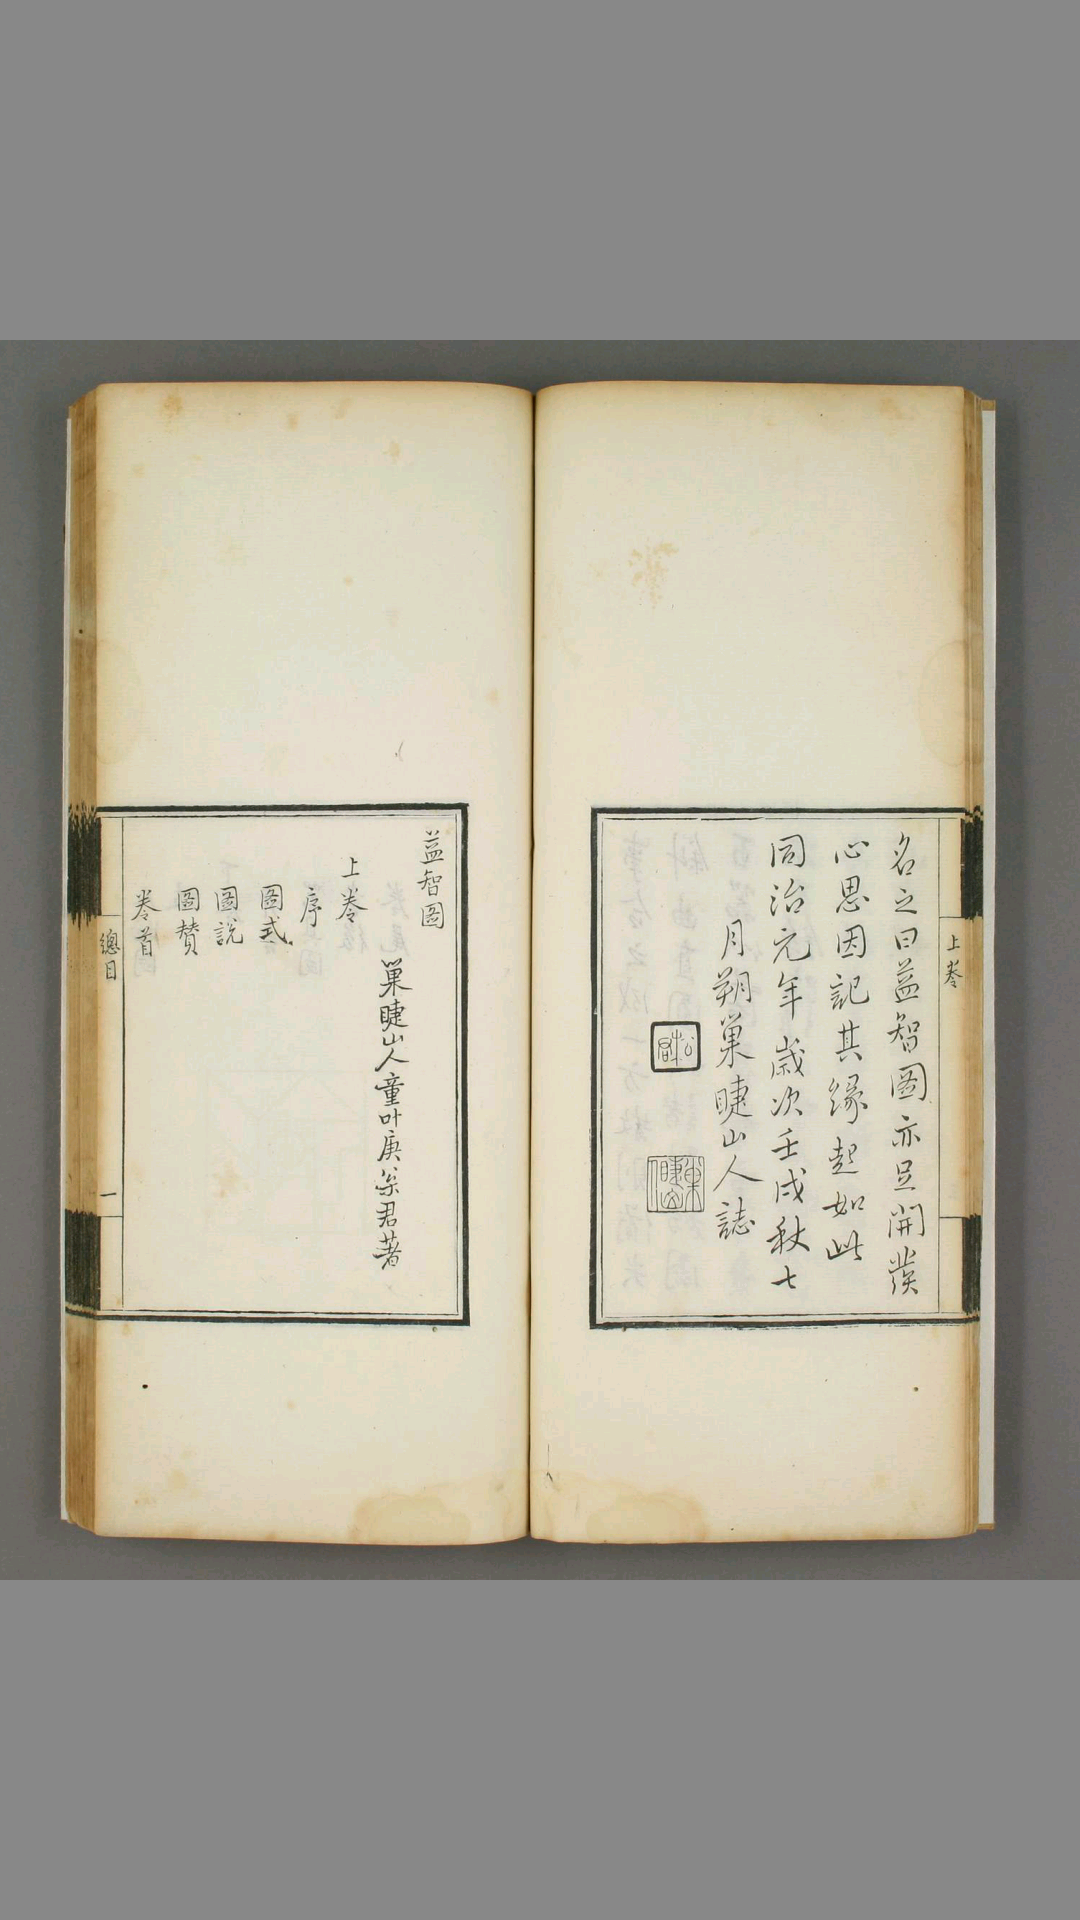 上卷
名之曰益智圖亦足開發
心思因記其緣起如此
同治元年歲次壬戌秋七
月朔巢睫山人誌
巢睫山人
益智圖
巢睫山人童叶庚松君著
上卷
序
圖式
圖說
圖贊
卷首
總目
一